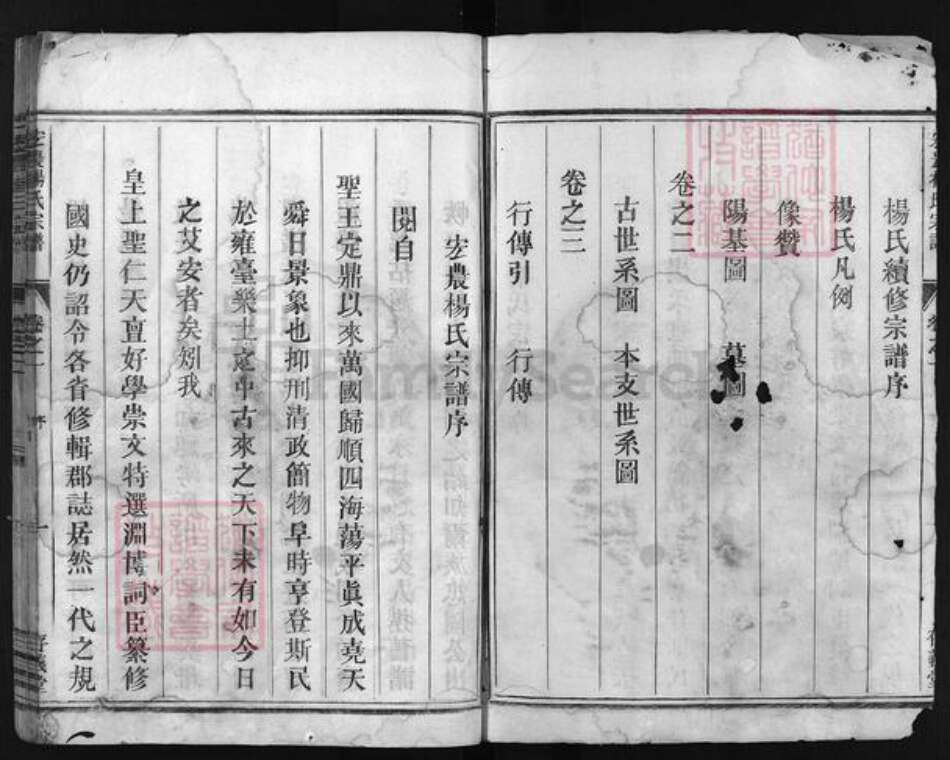 楊氏續修宗譜序
楊氏凡例
像贊
陽基圖 墓圖
卷之二
古世系圖 本支世系圖
卷之三
行傳引 行傳
宏農楊氏宗譜序
閱自
聖王定鼎以來萬國歸順四海蕩平眞成堯天
舜日景象也抑刑清政簡物阜時亨登斯民
於雍臺樂土之中古來之天下未有如今日
之艾安者矣矧我
皇上聖仁天亶好學崇文特選淵博詞臣纂修
國史仍詔令各省修輯郡誌居然一代之規
宏農楊氏宗譜
卷之一
序
存義堂
FamilySearch